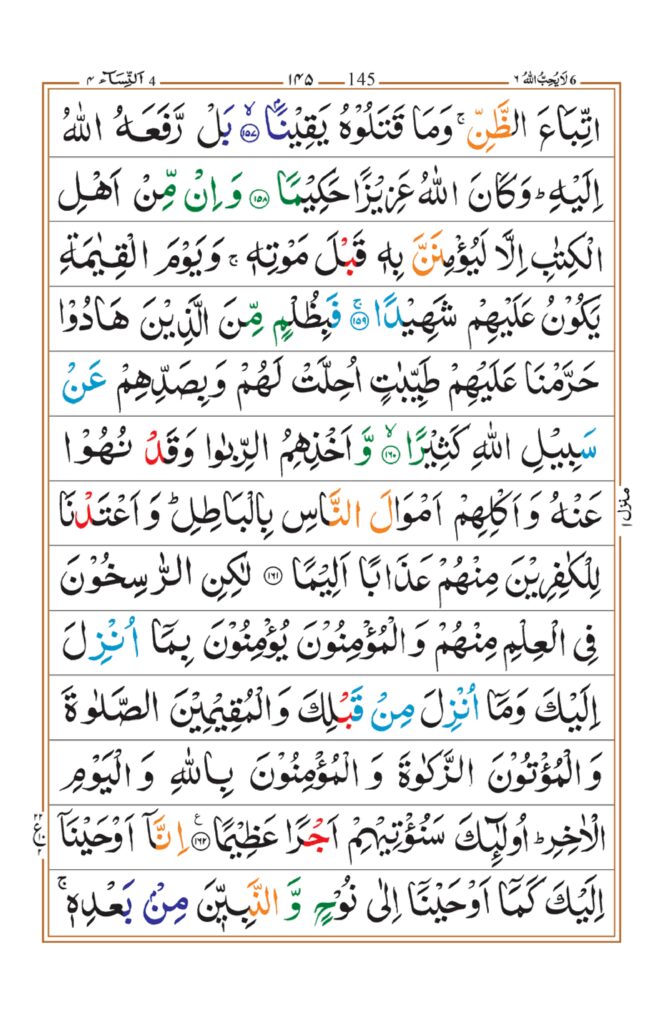 6 لَا يُحِبُّ اللهُ ٦ 145 ١۴۵ 4 اَلنِّسَآء ۴
اتِّبَاعَ الظَّنِّ ۚ وَمَا قَتَلُوْهُ يَقِيْنًۢا ۙ﴿۱۵۷﴾ بَلْ رَّفَعَهُ اللهُ
اِلَيْهِ ؕ وَكَانَ اللهُ عَزِيْزًا حَكِيْمًا ﴿۱۵۸﴾ وَ اِنْ مِّنْ اَهْلِ
الْكِتٰبِ اِلَّا لَيُؤْمِنَنَّ بِهٖ قَبْلَ مَوْتِهٖ ۚ وَيَوْمَ الْقِيٰمَةِ
يَكُوْنُ عَلَيْهِمْ شَهِيْدًا ۚ﴿۱۵۹﴾ فَبِظُلْمٍ مِّنَ الَّذِيْنَ هَادُوْا
حَرَّمْنَا عَلَيْهِمْ طَيِّبٰتٍ اُحِلَّتْ لَهُمْ وَبِصَدِّهِمْ عَنْ
سَبِيْلِ اللهِ كَثِيْرًا ۙ﴿۱۶۰﴾ وَّ اَخْذِهِمُ الرِّبٰوا وَقَدْ نُهُوْا
عَنْهُ وَ اَكْلِهِمْ اَمْوَالَ النَّاسِ بِالْبَاطِلِ ؕ وَ اَعْتَدْنَا
لِلْكٰفِرِيْنَ مِنْهُمْ عَذَابًا اَلِيْمًا ﴿۱۶۱﴾ لٰكِنِ الرّٰسِخُوْنَ
فِي الْعِلْمِ مِنْهُمْ وَ الْمُؤْمِنُوْنَ يُؤْمِنُوْنَ بِمَاۤ اُنْزِلَ
اِلَيْكَ وَمَاۤ اُنْزِلَ مِنْ قَبْلِكَ وَالْمُقِيْمِيْنَ الصَّلٰوةَ
وَ الْمُؤْتُوْنَ الزَّكٰوةَ وَ الْمُؤْمِنُوْنَ بِاللهِ وَ الْيَوْمِ
الْاٰخِرِ ؕ اُولٰٓئِكَ سَنُؤْتِيْهِمْ اَجْرًا عَظِيْمًا ﴿۱۶۲﴾ ع اِنَّاۤ اَوْحَيْنَاۤ
اِلَيْكَ كَمَاۤ اَوْحَيْنَاۤ اِلٰى نُوْحٍ وَّ النَّبِيّٖنَ مِنْۢ بَعْدِهٖ ۚ
منزل ۱